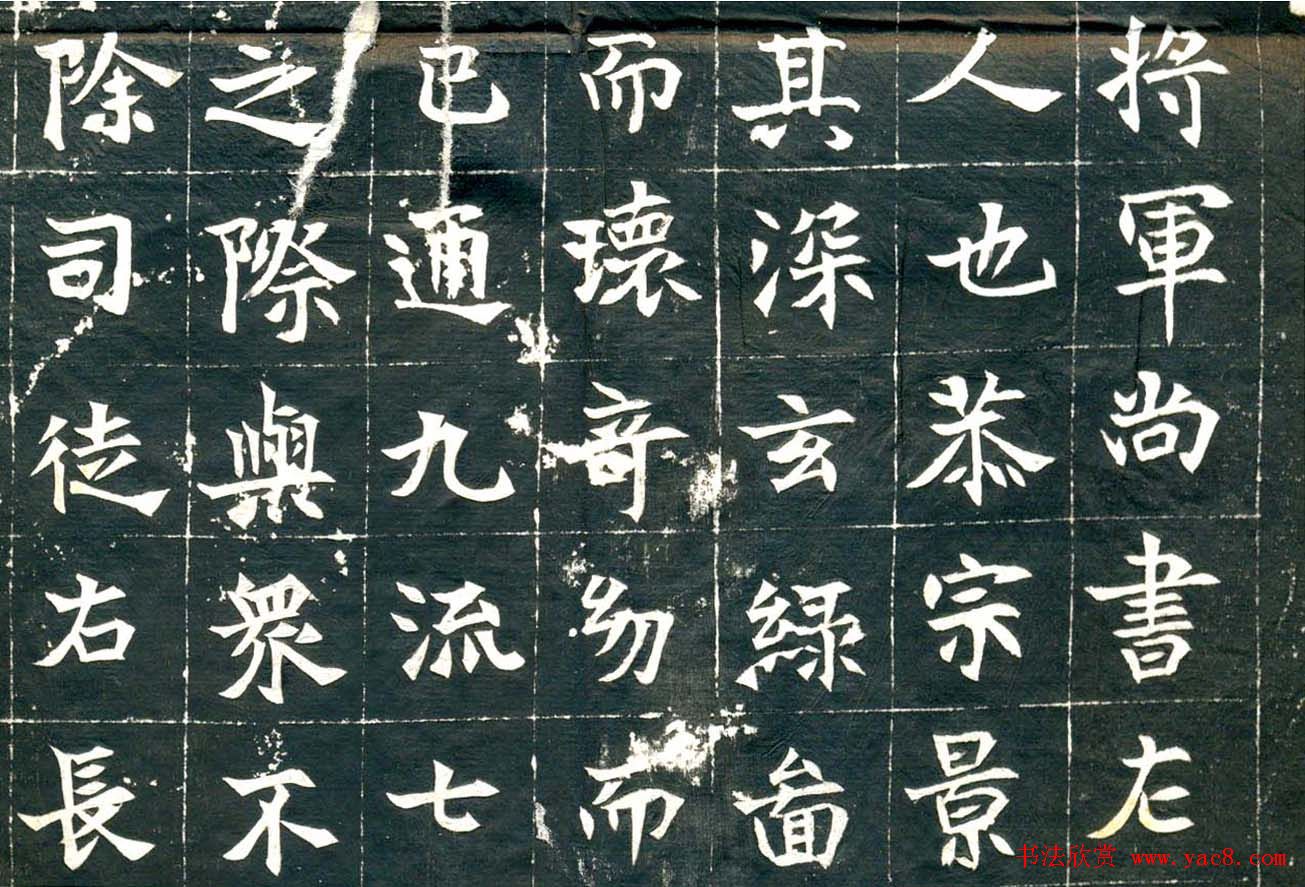 将軍尚書左
人也恭宗景
其深玄緑啚
而瓌竒幼而
已通九流七
之際與衆不
除司徒右長
书法欣赏 www.yac8.com